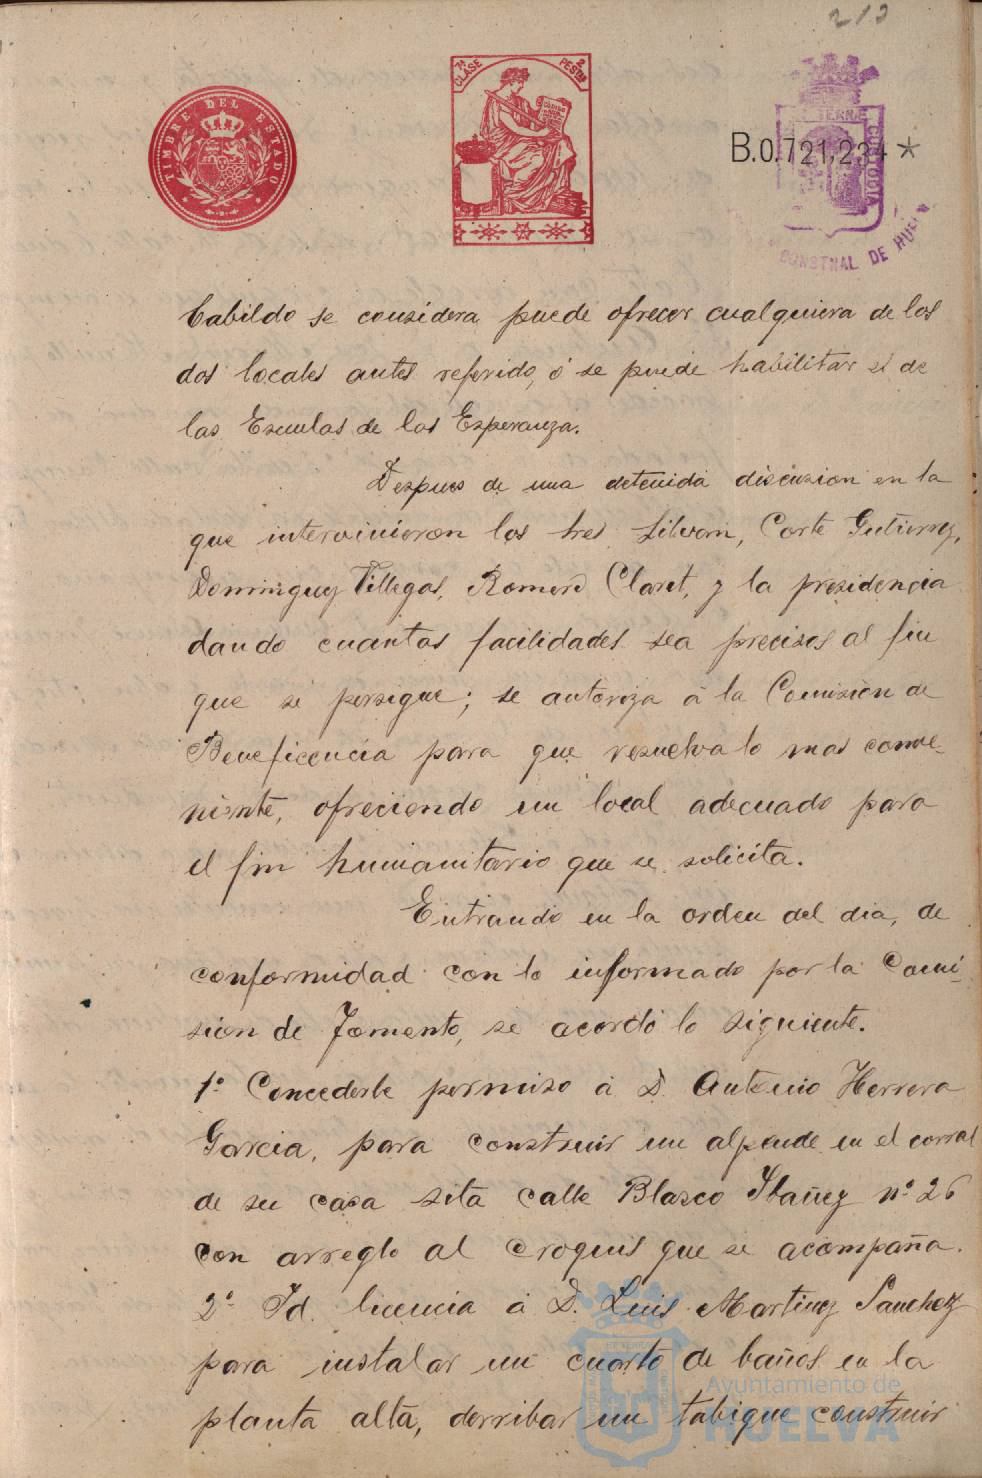 213
TIMBRE DEL ESTADO
7ª CLASE 2 PESTAS
B.0,721,234 *
TERNA CUSTODIA
CONSTNAL DE HUELVA
Cabildo se considera puede ofrecer cualquiera de los
dos locales antes referido, ó se puede habilitar el de
las Escuelas de las Esperanza.
Despues de una detenida discusion en la
que intervinieron los tres Silvan, Corte Gutierrez,
Dominguez Villegas, Romero Claret, y la presidencia
dando cuantas facilidades sea precisos al fin
que se persigue; se autoriza á la Comisión de
Beneficencia para que resuelva lo mas conve-
niente, ofreciendo un local adecuado para
el fin humanitario que se solicita.
Entrando en la orden del dia, de
conformidad con lo informado por la Comi-
sion de Fomento, se acordó lo siguiente.
1º Concederle permiso á D. Antonio Herrera
Garcia, para construir un alpende en el corral
de su casa sita calle Blasco Ibañez nº 26
con arreglo al croquis que se acompaña.
2º Id. licencia á D. Luis Martinez Sanchez
para instalar un cuarto de baños en la
planta alta, derribar un tabique construir
Ayuntamiento de
HUELVA